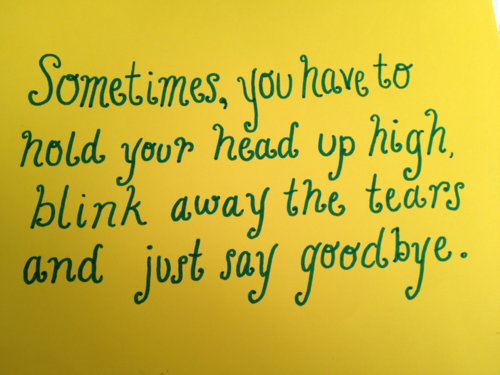 Sometimes, you have to
hold your head up high,
blink away the tears
and just say goodbye.